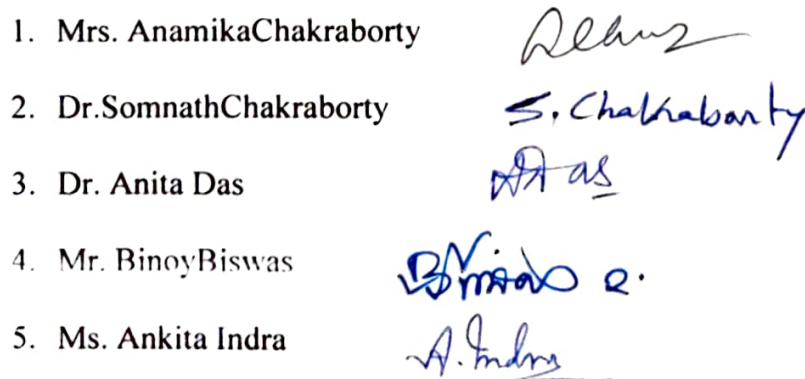 1. Mrs. AnamikaChakraborty
2. Dr.SomnathChakraborty S. Chakraborty
3. Dr. Anita Das ADas
4. Mr. BinoyBiswas
5. Ms. Ankita Indra A. Indra